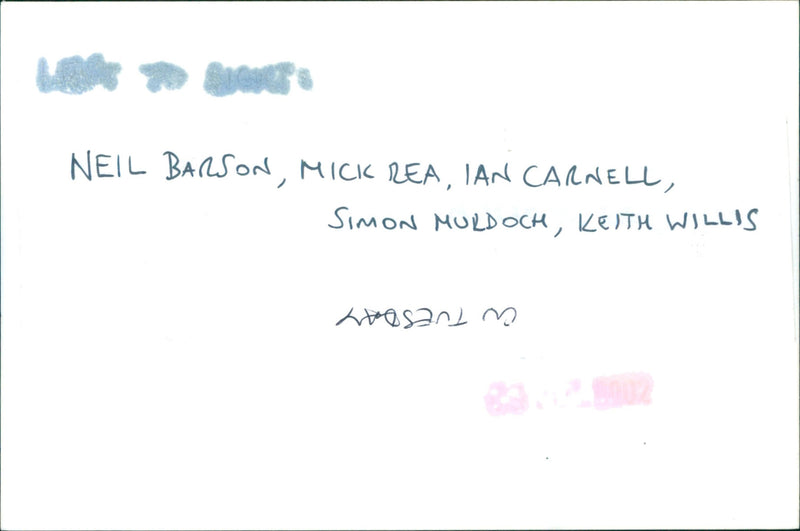 LEFT TO RIGHT:
NEIL BARSON, MICK REA, IAN CARNELL,
SIMON MURDOCH, KEITH WILLIS
CU TUESDAY
2002